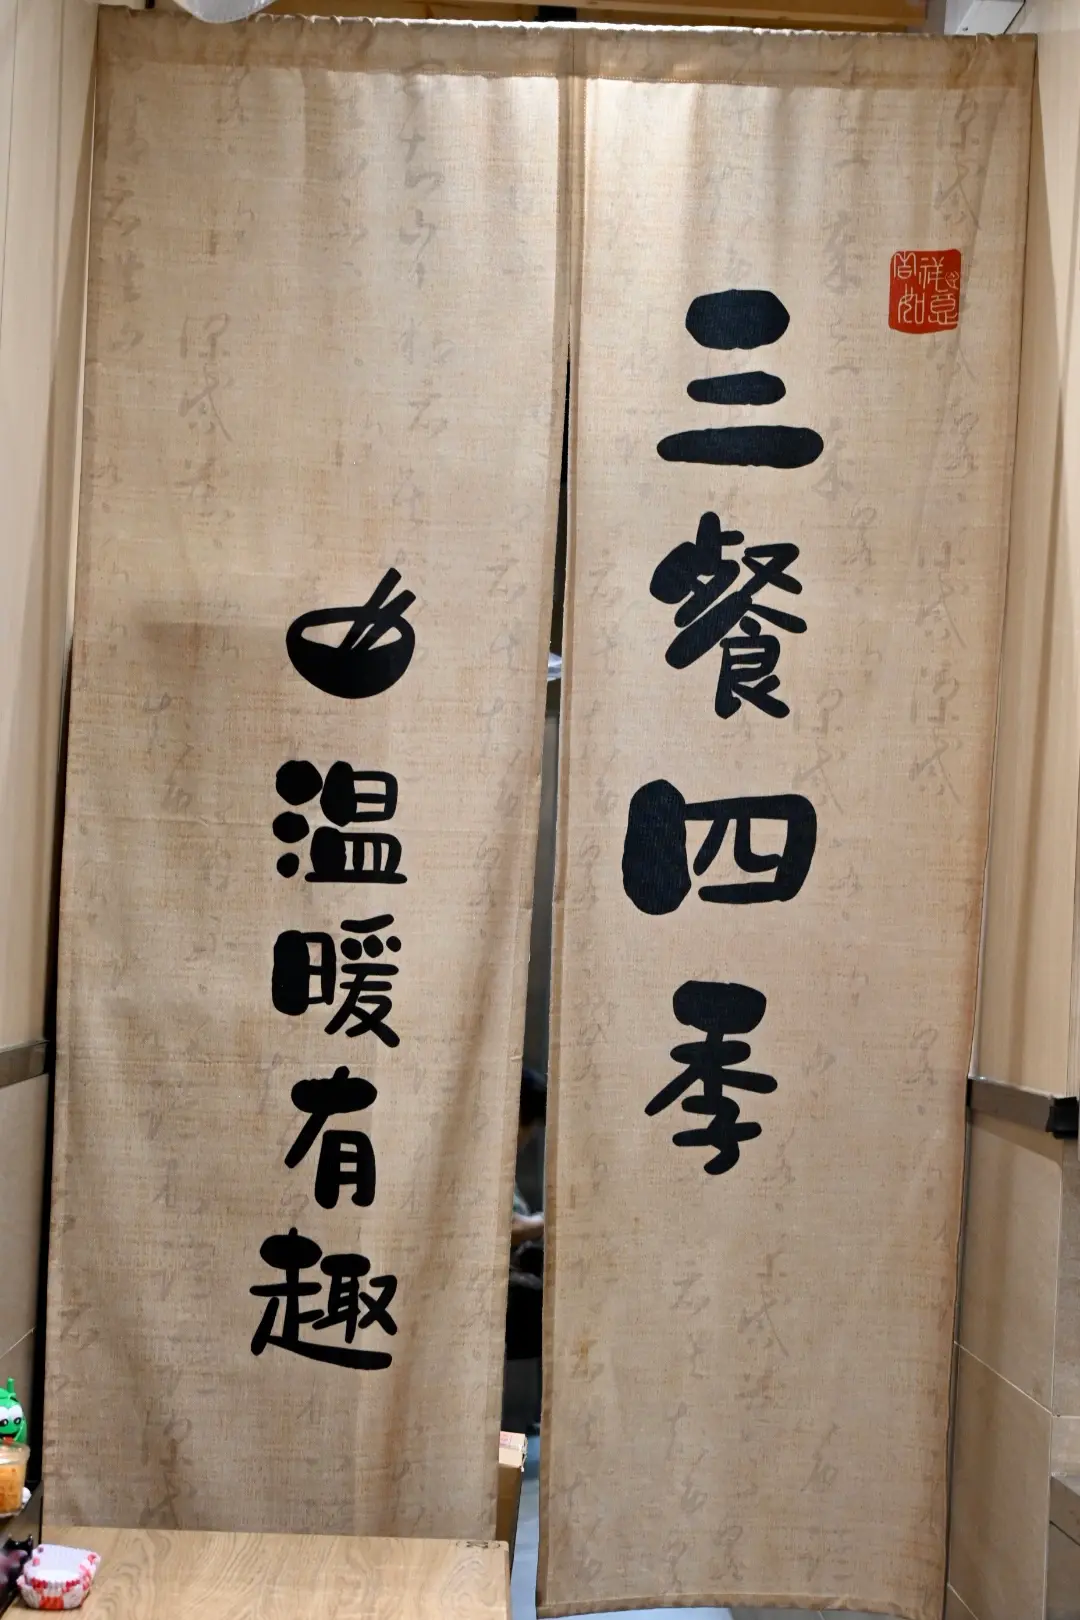 三餐四季
温暖有趣
吉祥如意